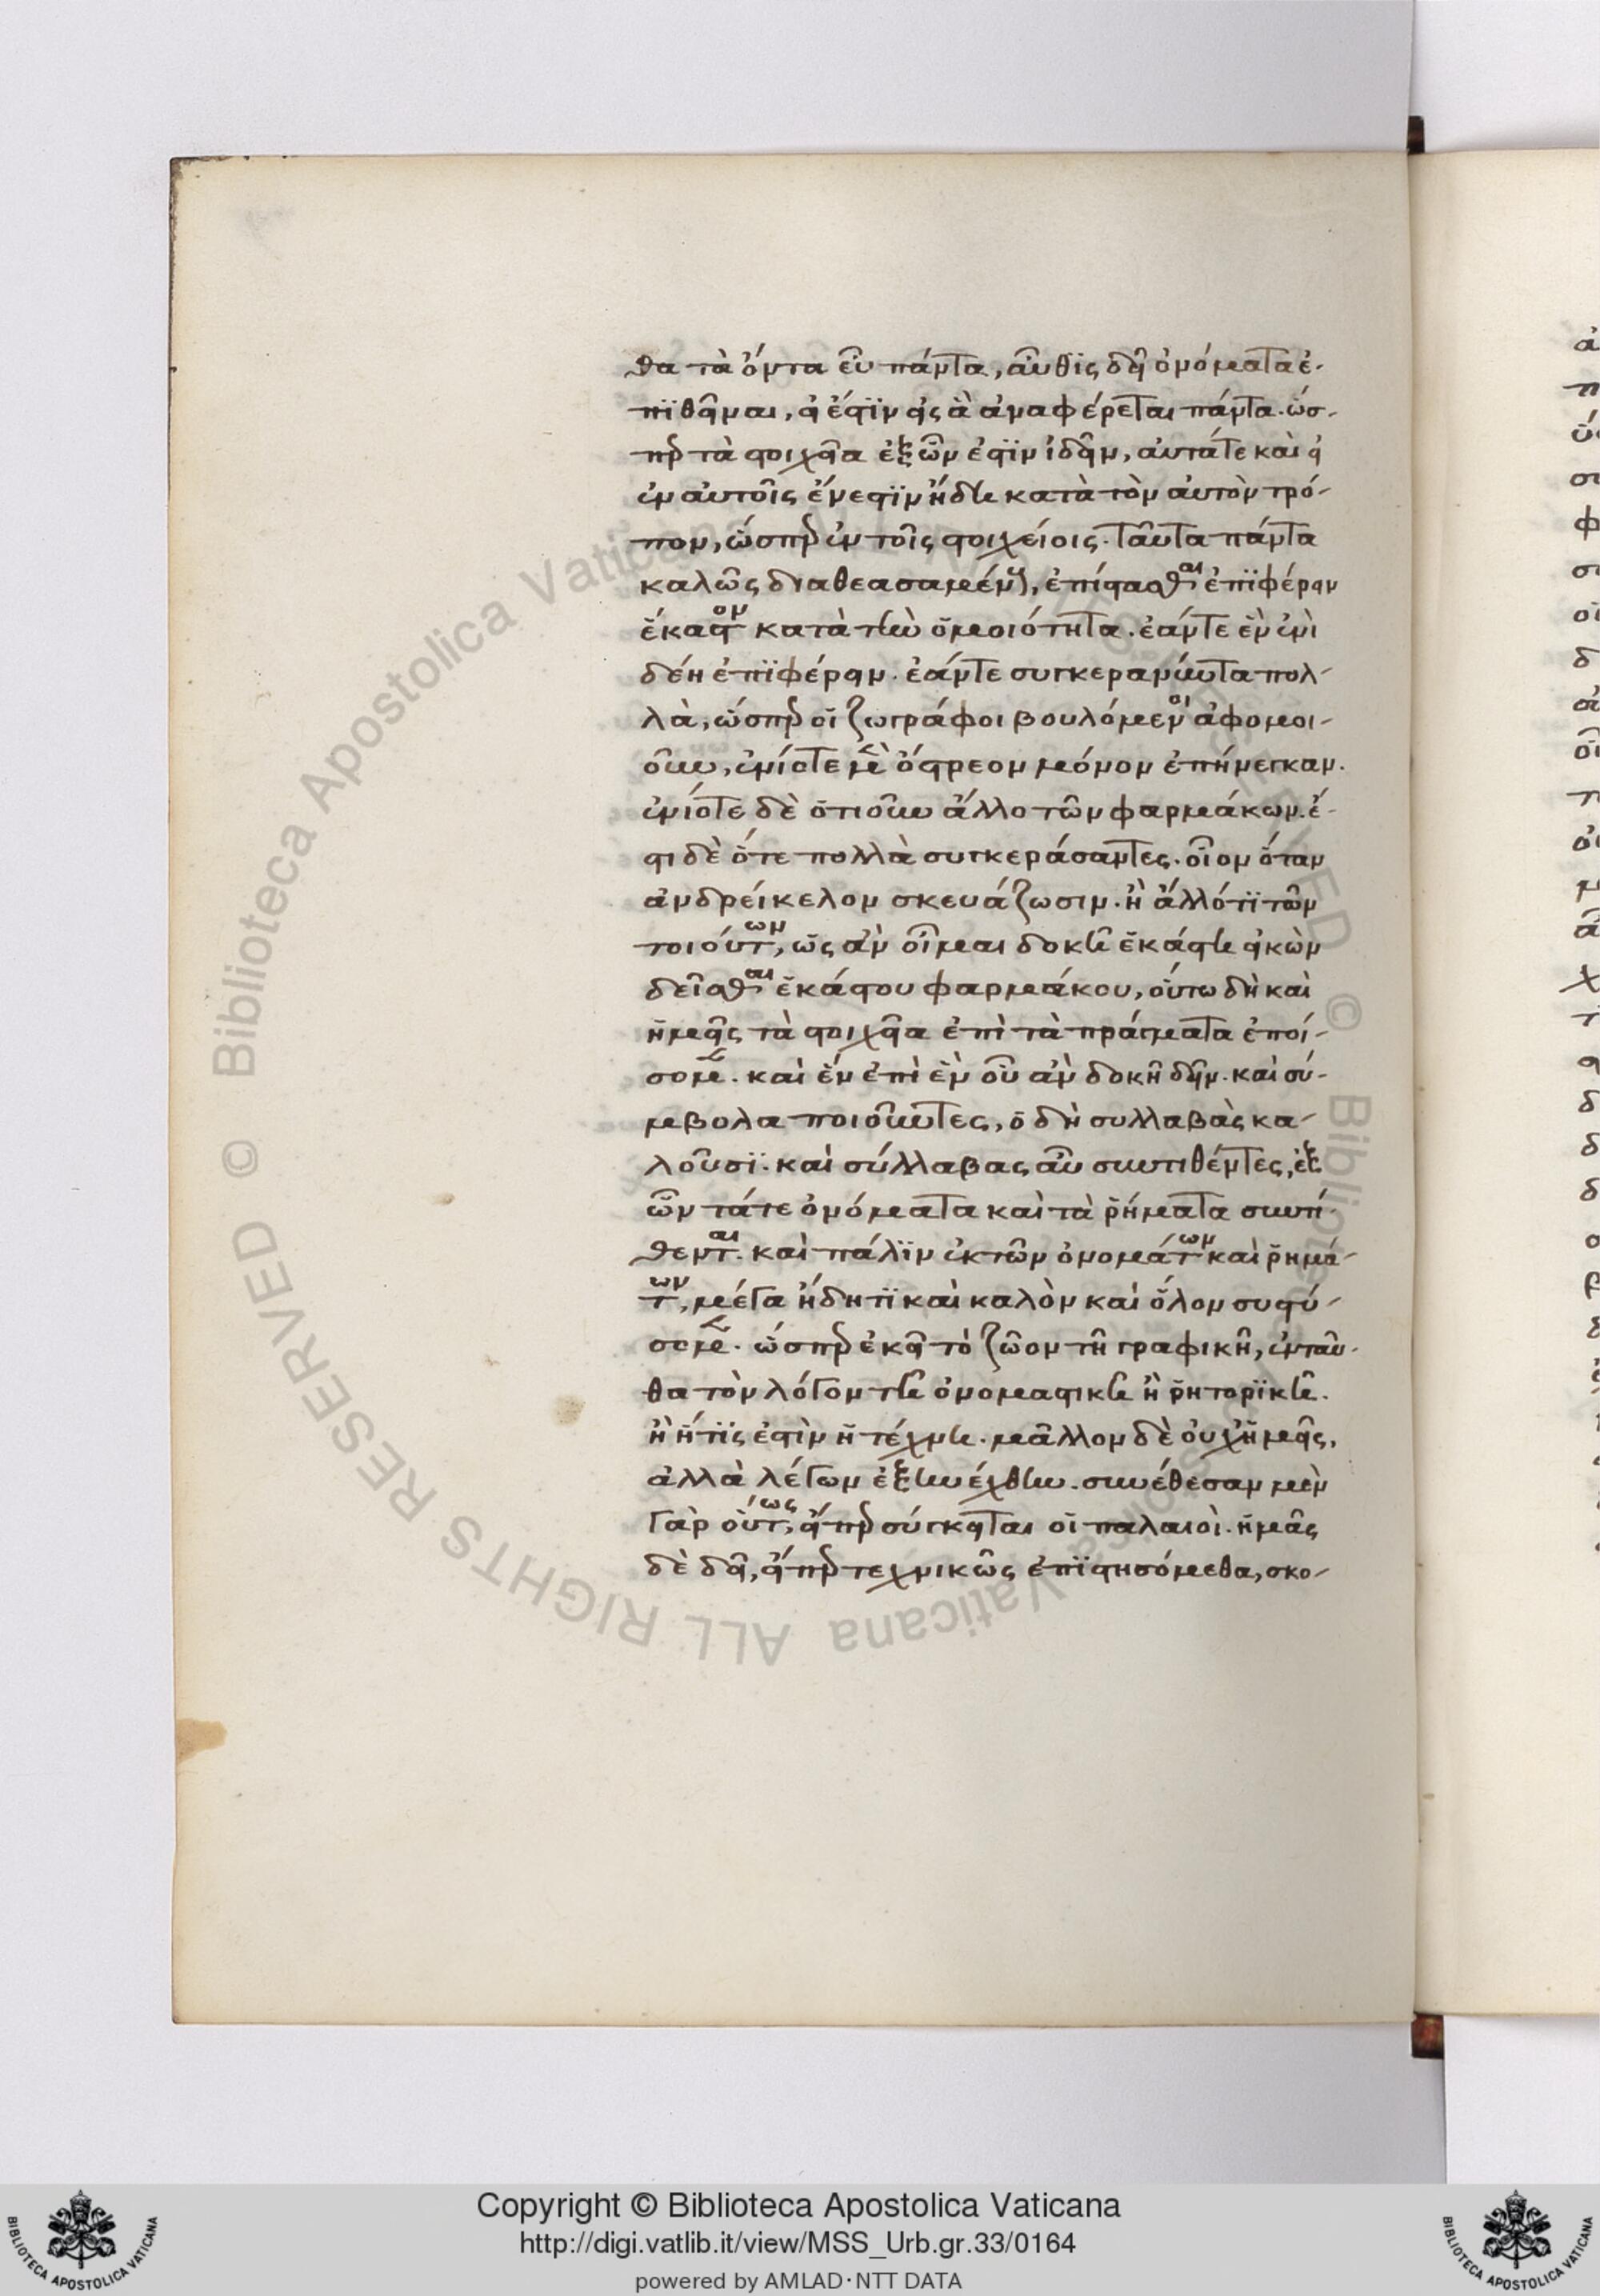 θα τὰ ὄντα εὖ πάντα, αὖθϊς δεῖ ὀνόματα ἐ-
πϊθεῖναι, εἰ ἔστϊν εἰς ἃ ἀναφέρεται πάντα. ὥσ-
περ τὰ στοιχεῖα ἐξ ὧν ἐστϊν ἰδεῖν, αὐτάτε καὶ εἰ
ἐν αὐτοῖς ἔνεστϊν ἤδη κατὰ τὸν αὐτὸν τρό-
πον, ὥσπερ ἐν τοῖς στοιχείοις. ταῦτα πάντα
καλῶς διαθεασαμένους, ἐπίστασθαι ἐπϊφέρειν
ἕκαστον κατὰ τὴν ὁμοιότητα. ἐάντε ἓν ἑνὶ
δέῃ ἐπϊφέρειν. ἐάντε συγκεραννύντα πολ-
λὰ, ὥσπερ οἱ ζωγράφοι βουλόμενοι ἀφομοι-
οῦν, ἐνίοτε μὲν ὄστρεον μόνον ἐπήνεγκαν.
ἐνίοτε δὲ ὁτιοῦν ἄλλο τῶν φαρμάκων. ἔ-
στι δὲ ὅτε πολλὰ συγκεράσαντες. οἷον ὅταν
ἀνδρείκελον σκευάζωσιν. ἢ ἄλλότϊ τῶν
τοιούτων, ὡς ἂν οἶμαι δοκῆ ἑκάστη εἰκὼν
δεῖσθαι ἑκάστου φαρμάκου, οὕτω δὴ καὶ
ἡμεῖς τὰ στοιχεῖα ἐπὶ τὰ πράγματα ἐποί-
σομεν. καὶ ἓν ἐπὶ ἓν οὗ ἂν δοκῆ δεῖν. καὶ σύ-
μβολα ποιοῦντες, ὃ δὴ συλλαβὰς κα-
λοῦσϊ. καὶ σύλλαβας αὖ συντιθέντες, ἐξ
ὧν τάτε ὀνόματα καὶ τὰ ῥήματα συντί-
θενται. καὶ πάλϊν ἐκ τῶν ὀνομάτων καὶ ῥημά-
των, μέγα ἤδη τϊ καὶ καλὸν καὶ ὅλον συστή-
σομεν. ὥσπερ ἐκεῖ τὸ ζῶον τῆ γραφικῆ, ἐνταῦ-
θα τὸν λόγον τῆ ὀνομαστικῆ ἢ ῥητορϊκῆ.
ἢ ἥτϊς ἐστὶν ἡ τέχνη. μᾶλλον δὲ οὐχ ἡμεῖς,
ἀλλὰ λέγων ἐξηνέχθην. συνέθεσαν μὲν
γὰρ οὕτως, εἴπερ σύγκειται οἱ παλαιοὶ. ἡμᾶς
δὲ δεῖ, εἴπερ τεχνικῶς ἐπϊστησόμεθα, σκο-
Copyright © Biblioteca Apostolica Vaticana
http://digi.vatlib.it/view/MSS_Urb.gr.33/0164
powered by AMLAD·NTT DATA
© Biblioteca Apostolica Vaticana ALL RIGHTS RESERVED
BIBLIOTECA APOSTOLICA VATICANA
BIBLIOTECA APOSTOLICA VATICANA